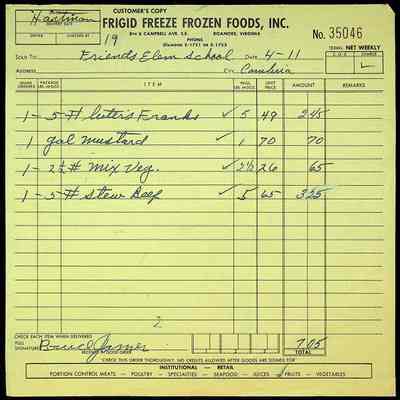 CUSTOMER'S COPY
Hartman
FRIGID FREEZE FROZEN FOODS, INC.
DRIVER CHECKED BY
19
3rd & CAMPBELL AVE. S.E. ROANOKE, VIRGINIA
PHONE
Diamond 5-1751 or 5-1752
No. 35046
TERMS: NET WEEKLY
SOLD TO Friends Elem School Date 4-11
C.O.D. CHARGE
ADDRESS City Cambria
UNITS ORDERED PACKAGE LBS. OR NOS. ITEM FULL LBS. OR NOS. UNIT PRICE AMOUNT REMARKS
1 - 5 # Franks ✓ 5 49 2 45
1 gal mustard ✓ 1 70 70
1 - 2½ # Mix Veg. ✓ 2½ 26 65
1 - 5 # Stew Beef ✓ 5 65 3 25
2
CHECK EACH ITEM WHEN DELIVERED
FULL SIGNATURE Bruce
RECEIVED IN GOOD ORDER
7.05
TOTAL
CHECK THIS ORDER THOROUGHLY. NO CREDITS ALLOWED AFTER GOODS ARE SIGNED FOR
INSTITUTIONAL — RETAIL
PORTION CONTROL MEATS — POULTRY — SPECIALTIES — SEAFOOD — JUICES — FRUITS — VEGETABLES